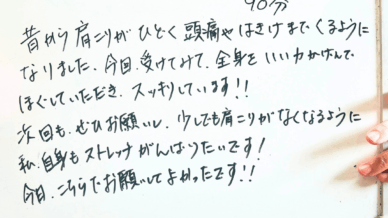 90分
昔から肩こりがひどく頭痛やはきけまでくるように
なりました。今回、受けてみて、全身をいい力かげんで
ほぐしていただき、スッキリしています!!
次回も、ぜひお願いし、少しでも肩こりがなくなるように
私自身もストレッチがんばりたいです!
今日、こちらでお願いしてよかったです!!